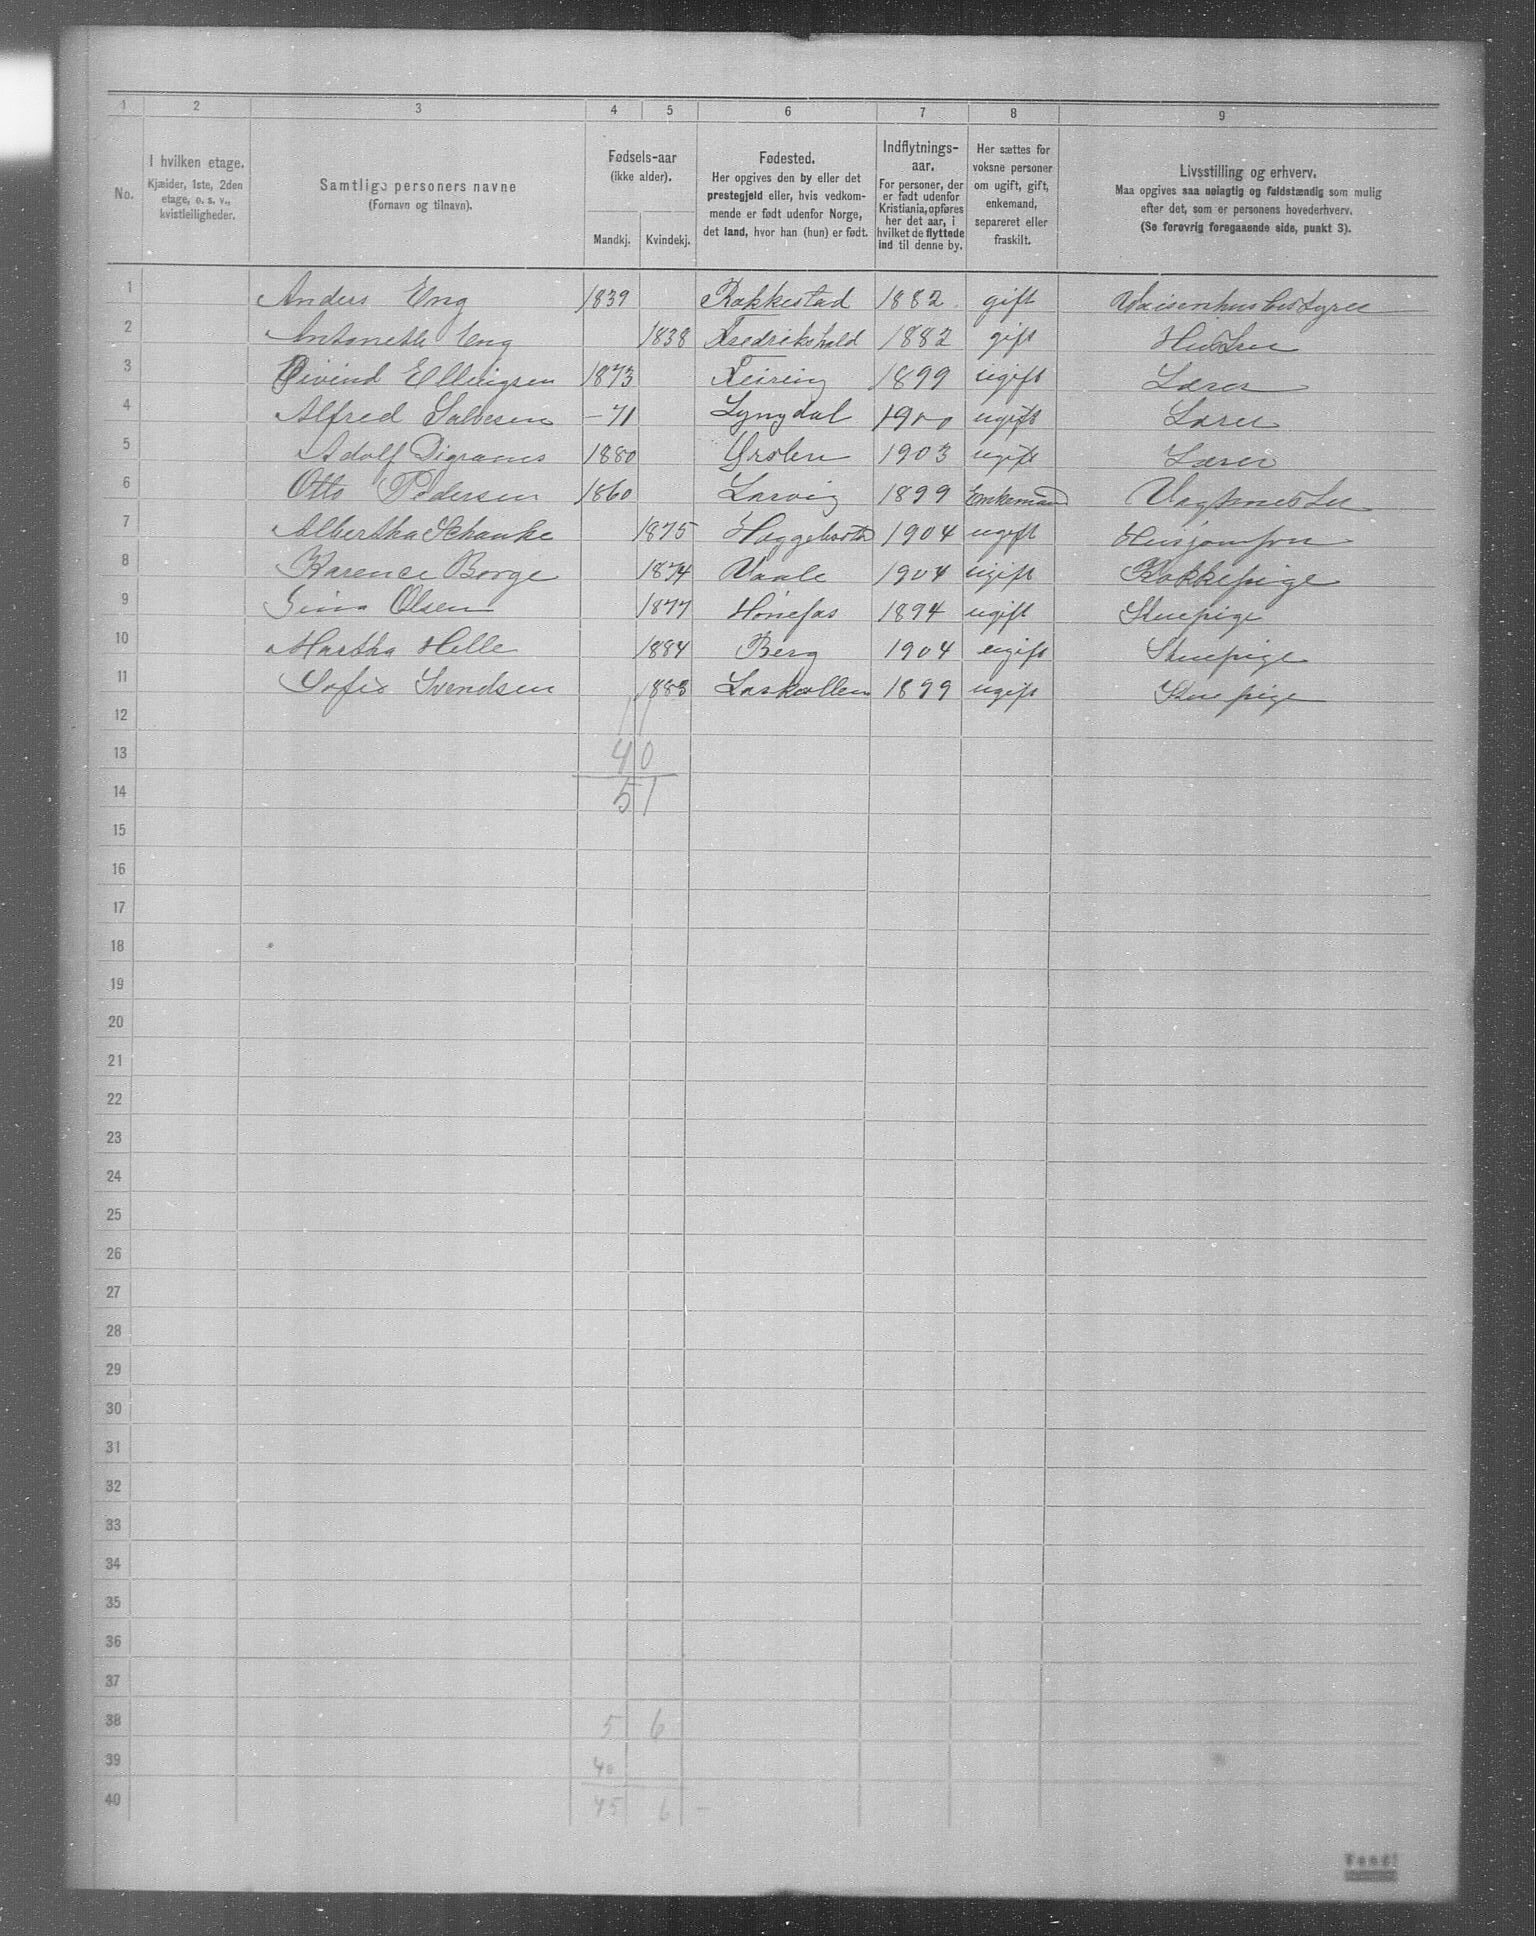 1 2 3 4 5 6 7 8 9
No.
I hvilken etage.
Kjælder, 1ste, 2den
etage, o. s. v.,
kvistleiligheder.
Samtlige personers navne
(Fornavn og tilnavn).
Fødsels-aar
(ikke alder).
Mandkj. Kvindekj.
Fødested.
Her opgives den by eller det
prestegjeld eller, hvis vedkom-
mende er født udenfor Norge,
det land, hvor han (hun) er født.
Indflytnings-
aar.
For personer, der
er født udenfor
Kristiania, opføres
her det aar, i
hvilket de flyttede
ind til denne by.
Her sættes for
voksne personer
om ugift, gift,
enkemand,
separeret eller
fraskilt.
Livsstilling og erhverv.
Maa opgives saa nøiagtig og fuldstændig som mulig
efter det, som er personens hovederhverv.
(Se forøvrig foregaaende side, punkt 3).
1 Anders Eng 1839 Rakkestad 1882 gift Vaisenhusbestyrer
2 Antonette Eng 1838 Fredrikshald 1882 gift Hustru
3 Øivind Ellingsen 1873 Feiring 1899 ugift Lærer
4 Alfred Salvesen -71 Lyngdal 1900 ugift Lærer
5 Adolf Digranes 1880 Ørsten 1903 ugift Lærer
6 Otto Pedersen 1860 Larvig 1899 Enkemand Vagtmester
7 Albertha Schanke 1875 1904 ugift Husjomfru
8 Karence Borge 1874 Vaale 1904 ugift Kokkepige
9 Gina Olsen 1877 Hønefos 1894 ugift Stuepige
10 Martha Helle 1884 Berg 1904 ugift Stuepige
11 Sofie Svendsen 1883 Laskollen 1899 ugift Stuepige
12 11
13 40
14 51
15
16
17
18
19
20
21
22
23
24
25
26
27
28
29
30
31
32
33
34
35
36
37
38 5 6
39 40
40 45 6 -
Vend!